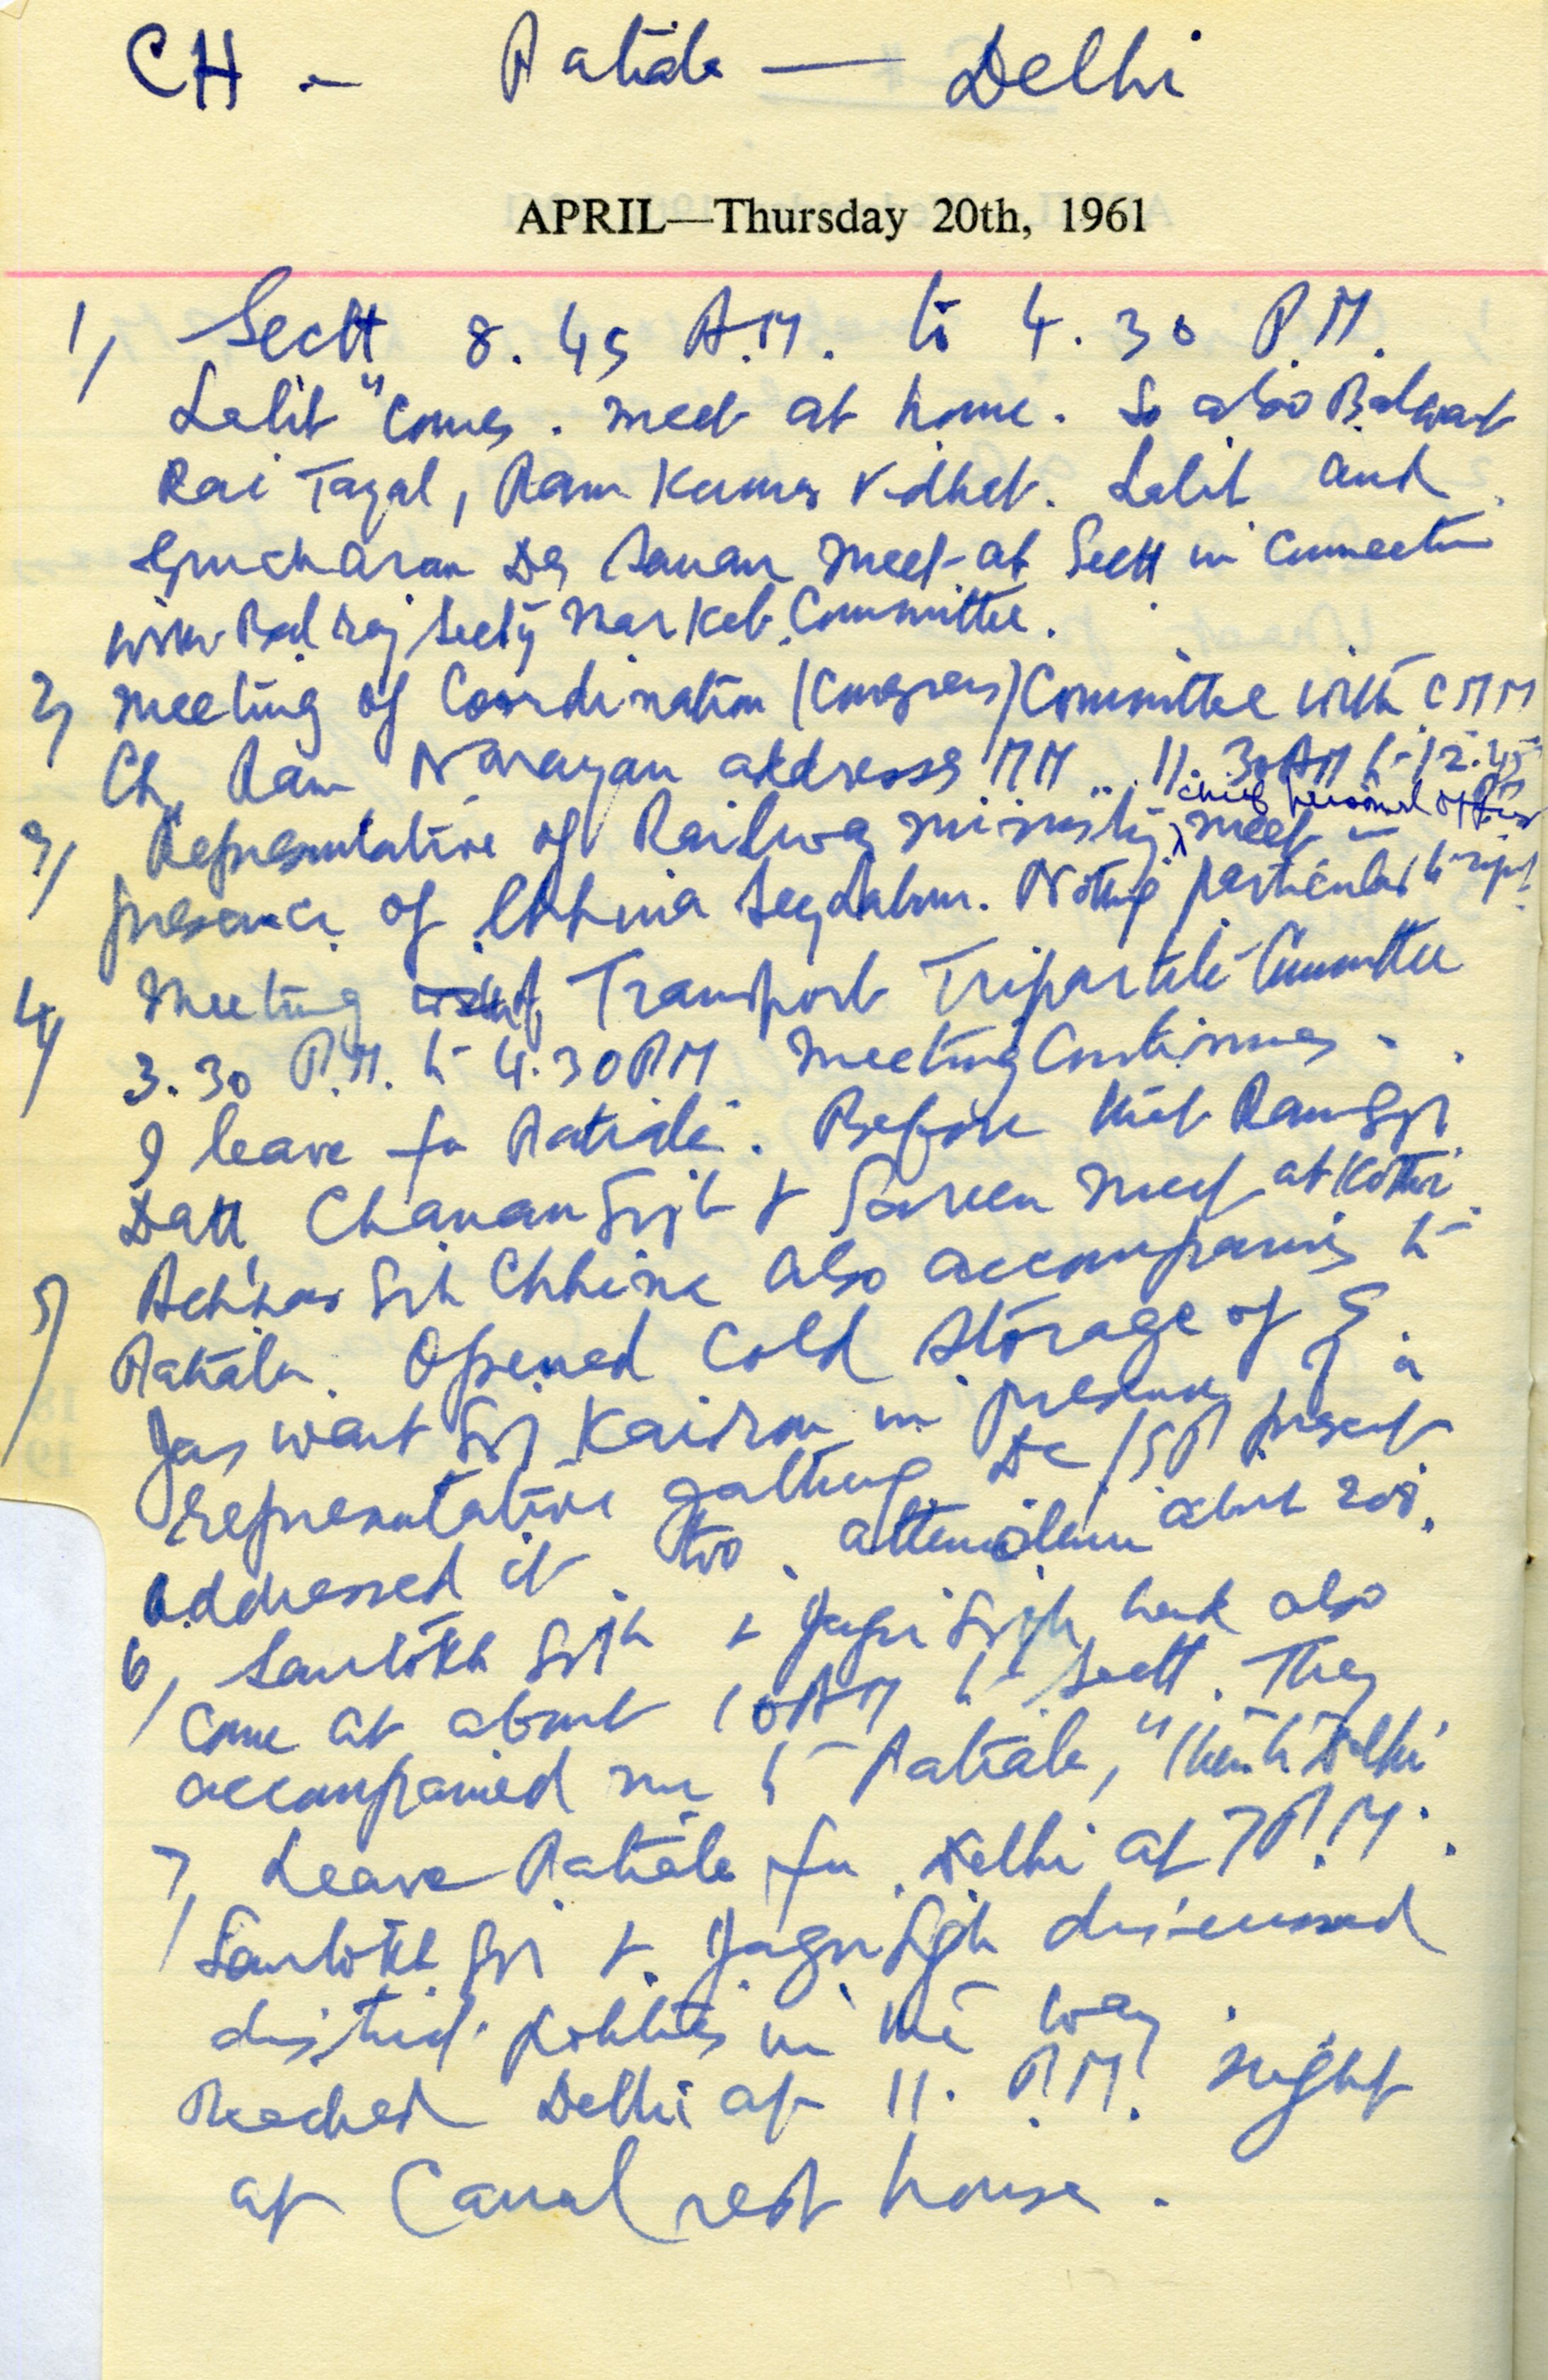 CH - Patiala — Delhi
APRIL—Thursday 20th, 1961
1, Sectt 8.45 A.M. to 4.30 P.M.
Lalit " comes. meet at home. So also Balwant
Rai Tayal, Ram Kumar. Lalit and
Gurcharan Das meet at Sectt in connection
with Balraj Secty Market Committee.
2, Meeting of Coordination (Congress) Committee with C M M
Ch. Ram Narayan addresses MM .. 11.30 AM to 12.45
3, Representative of Railway ministry chief personnel officer meet in
presence of Chhina. Nothing particular to
4, Meeting of Transport Tripartite Committee
3.30 P.M. to 4.30 PM Meeting Continues.
I leave for Patiala. Before that Ram
Datt Chanan Singh & Sareen meet at Kothi
5, Achhar Singh Chhina also accompanies to
Patiala. Opened Cold Storage of S.
Jaswant Singh Kairon in presence of a
representative gathering DC/SP present
addressed it too. attendance about 200.
6, Santokh Singh & Jagir Singh had also
come at about 10 AM to Sectt. They
accompanied me to Patiala, " then to Delhi
7, Leave Patiala for Delhi at 7 P.M.
Santokh Singh & Jagir Singh discussed
district politics in the way.
Reached Delhi at 11. P.M. night
at Canal rest house.